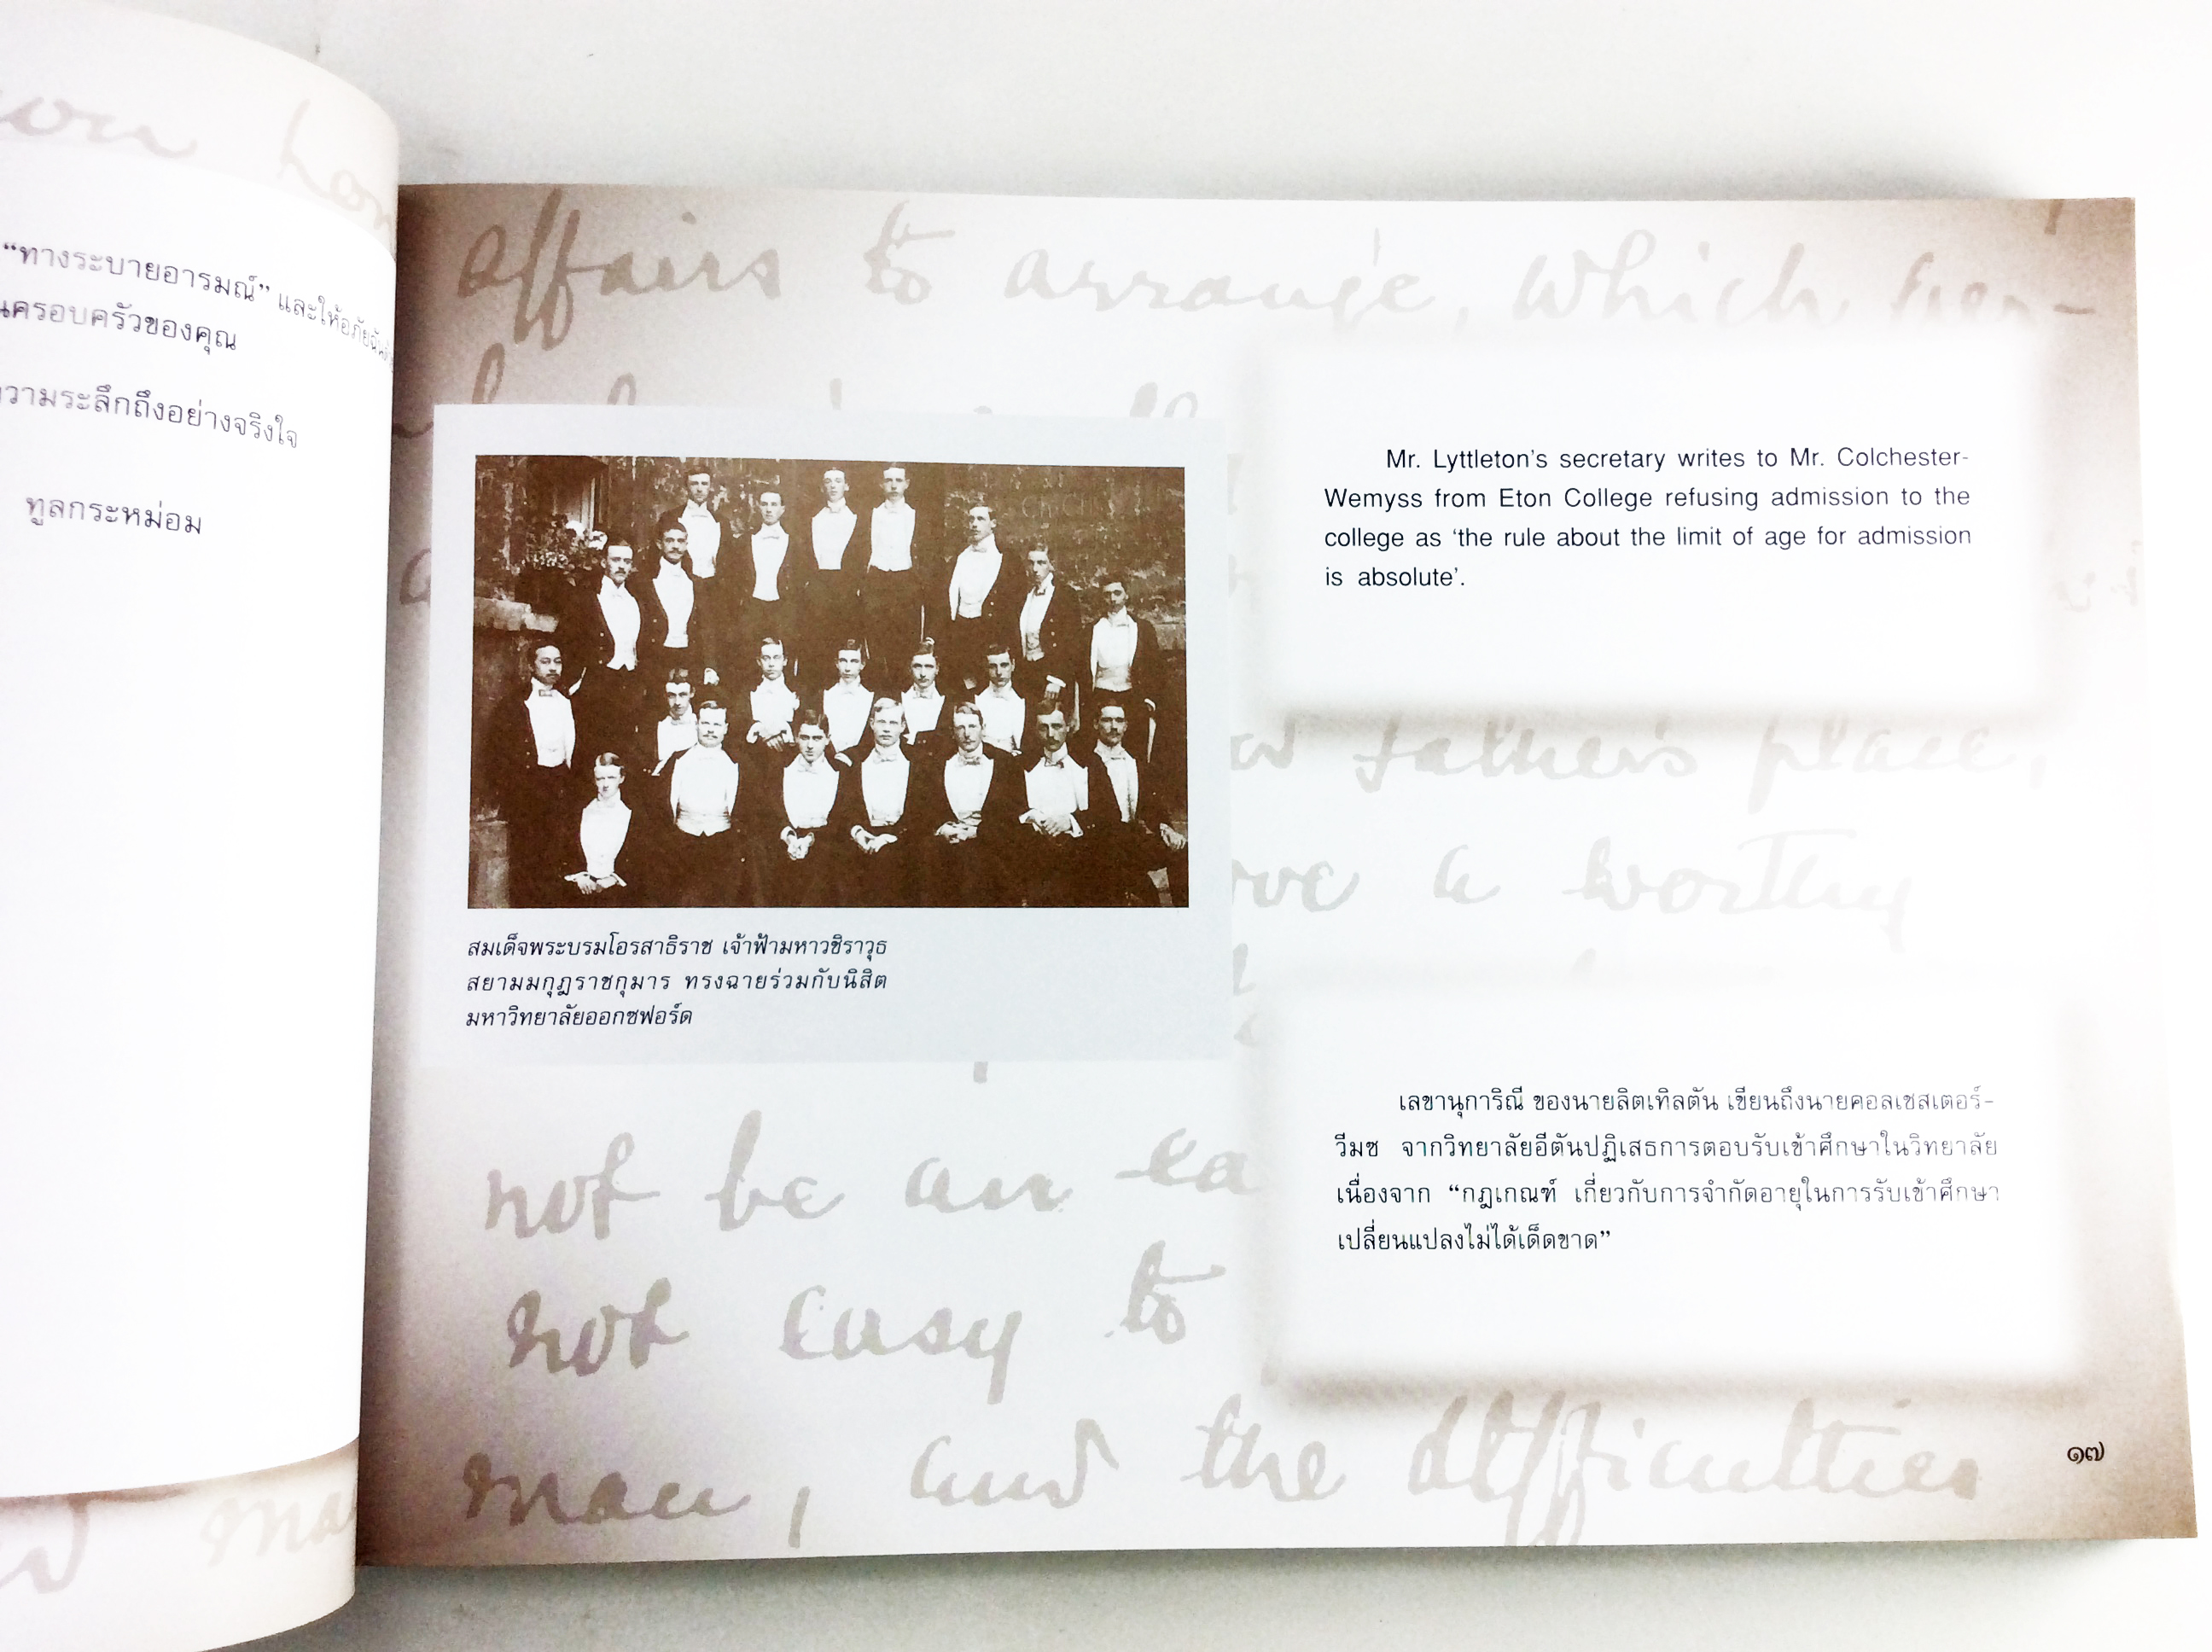 “ทางระบายอารมณ์” และให้อภัยฉันด้วย
ครอบครัวของคุณ
ความระลึกถึงอย่างจริงใจ
ทูลกระหม่อม
affairs to arrange, which
Mr. Lyttleton’s secretary writes to Mr. Colchester-
Wemyss from Eton College refusing admission to the
college as ‘the rule about the limit of age for admission
is absolute’.
father's place,
a worthy
สมเด็จพระบรมโอรสาธิราช เจ้าฟ้ามหาวชิราวุธ
สยามมกุฎราชกุมาร ทรงฉายร่วมกับนิสิต
มหาวิทยาลัยออกซฟอร์ด
เลขานุการิณี ของนายลิตเทิลตัน เขียนถึงนายคอลเชสเตอร์-
วีมซ จากวิทยาลัยอีตันปฏิเสธการตอบรับเข้าศึกษาในวิทยาลัย
เนื่องจาก “กฎเกณฑ์ เกี่ยวกับการจำกัดอายุในการรับเข้าศึกษา
เปลี่ยนแปลงไม่ได้เด็ดขาด”
not be an
not easy to
man, and the difficulties
๑๗